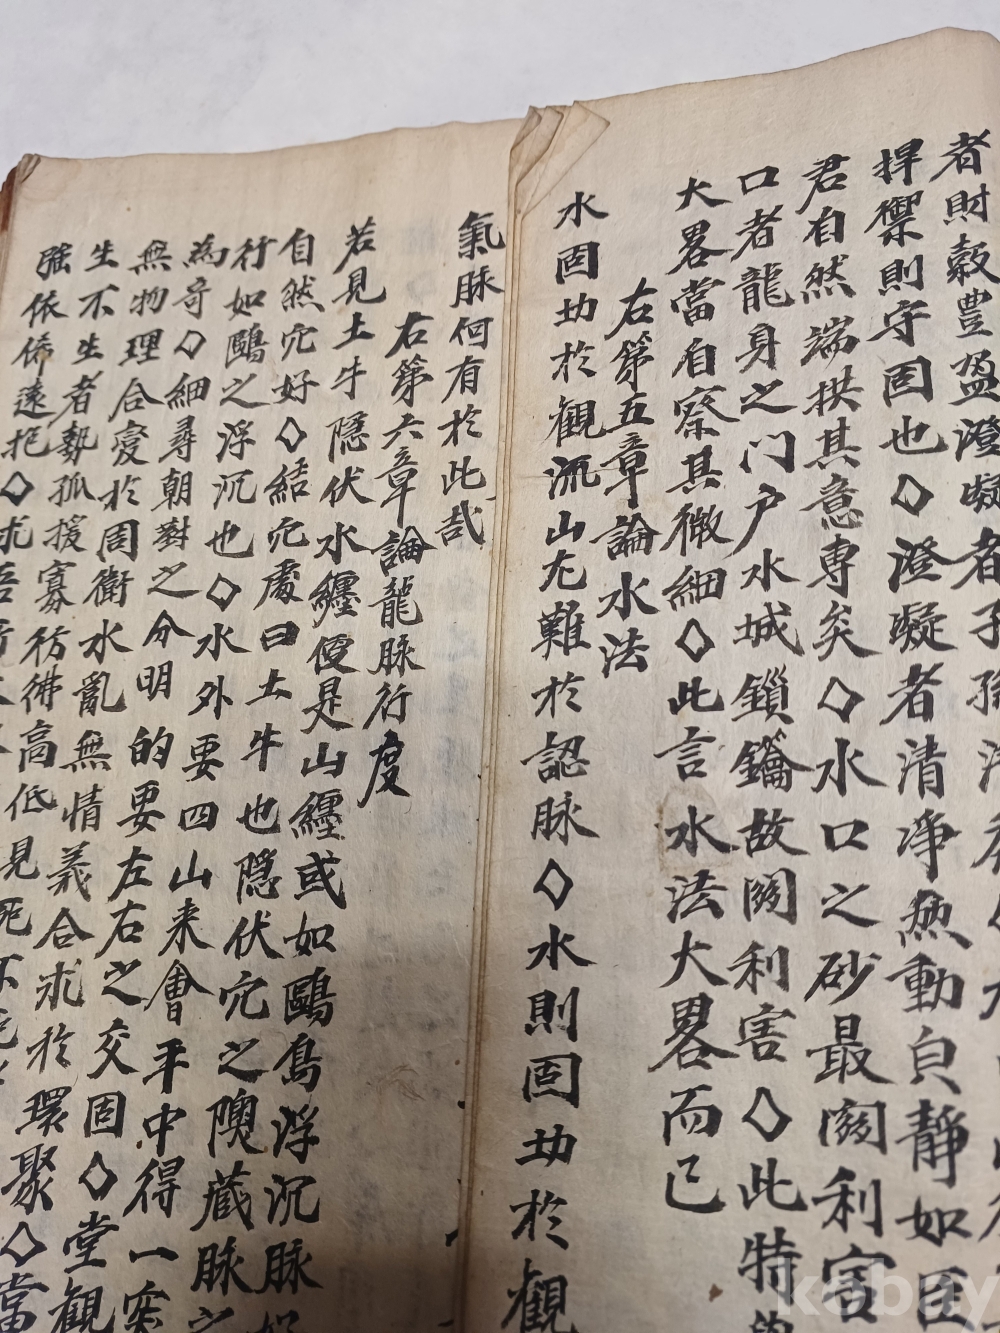 者財穀豊盈澄凝者子孫
捍禦則守固也◇澄凝者清净無動貞静如臣
君自然端拱其意専矣◇水口之砂最関利害
口者龍身之门户水城鎖鑰故関利害◇此特
大畧當自察其微細◇此言水法大畧而已
右第五章論水法
水固功於観流山尤難於認脉◇水則固功於観
氣脉何有於此哉
右第六章論龍脉行度
若見土牛隠伏水纒便是山纒或如鷗鳥浮沉脉
自然穴好◇結穴處曰土牛也隠伏穴之隩蔵脉之
行如鷗之浮沉也◇水外要四山来會平中得一突
為奇◇細尋朝對之分明的要左右之交固◇堂観
無物理合愛於周衛水亂無情義合求於環聚◇當
生不生者勢孤援寡彷彿高低見死不
强依俙遠拒◇求
kobay